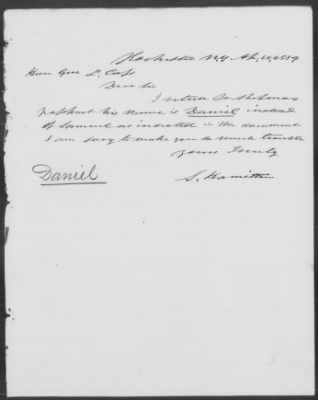 Rochester N.Y. Ap. 18, 1889
Hon Geo
Dear Sir
I return
passport his name is Daniel instead
of Samuel as inserted in the document
I am sorry to make you so much trouble
yours Truly
Daniel
S. Hamilton